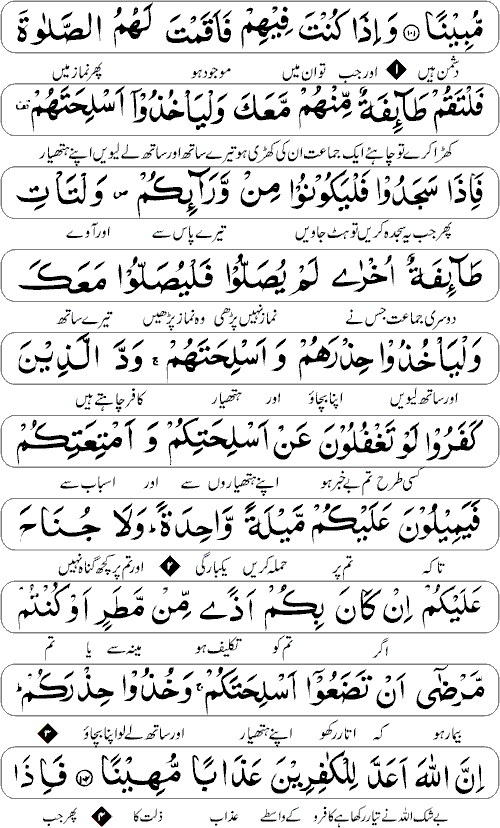 مُّبِيْنًا ﴿۱۰۱﴾ وَاِذَا كُنْتَ فِيْهِمْ فَاَقَمْتَ لَهُمُ الصَّلٰوةَ
دشمن ہیں ۱ اور جب تو ان میں موجود ہو پھر نماز میں
فَلْتَقُمْ طَآئِفَةٌ مِّنْهُمْ مَّعَكَ وَلْيَاْخُذُوْٓا اَسْلِحَتَهُمْ
کھڑا کرے تو چاہئے ایک جماعت ان کی کھڑی ہو تیرے ساتھ اور ساتھ لے لیویں اپنے ہتھیار
فَاِذَا سَجَدُوْا فَلْيَكُوْنُوْا مِنْ وَّرَآئِكُمْ ص وَلْتَاْتِ
پھر جب یہ سجدہ کریں تو ہٹ جاویں تیرے پاس سے اور آوے
طَآئِفَةٌ اُخْرٰى لَمْ يُصَلُّوْا فَلْيُصَلُّوْا مَعَكَ
دوسری جماعت جس نے نماز نہیں پڑھی وہ نماز پڑھیں تیرے ساتھ
وَلْيَاْخُذُوْا حِذْرَهُمْ وَاَسْلِحَتَهُمْ ج وَدَّ الَّذِيْنَ
اور ساتھ لیویں اپنا بچاؤ اور ہتھیار کافر چاہتے ہیں
كَفَرُوْا لَوْ تَغْفُلُوْنَ عَنْ اَسْلِحَتِكُمْ وَاَمْتِعَتِكُمْ
کسی طرح تم بے خبر ہو اپنے ہتھیاروں سے اور اسباب سے
فَيَمِيْلُوْنَ عَلَيْكُمْ مَّيْلَةً وَّاحِدَةً ط وَلَا جُنَاحَ
تاکہ تم پر حملہ کریں یکبارگی ۲ اور تم پر کچھ گناہ نہیں
عَلَيْكُمْ اِنْ كَانَ بِكُمْ اَذًى مِّنْ مَّطَرٍ اَوْ كُنْتُمْ
اگر تم کو تکلیف ہو مینہ سے یا تم
مَّرْضٰٓى اَنْ تَضَعُوْٓا اَسْلِحَتَكُمْ ج وَخُذُوْا حِذْرَكُمْ ط
بیمار ہو کہ اتار رکھو اپنے ہتھیار اور ساتھ لے لو اپنا بچاؤ ۳
اِنَّ اللّٰهَ اَعَدَّ لِلْكٰفِرِيْنَ عَذَابًا مُّهِيْنًا ﴿۱۰۲﴾ فَاِذَا
بے شک اللہ نے تیار رکھا ہے کافرو کے واسطے عذاب ذلت کا ۴ پھر جب